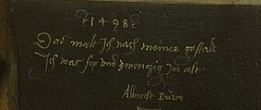 1498
Das malt Ich nach meiner gestalt
Ich was sex und zwenzig Jor alt
Albrecht Dürer